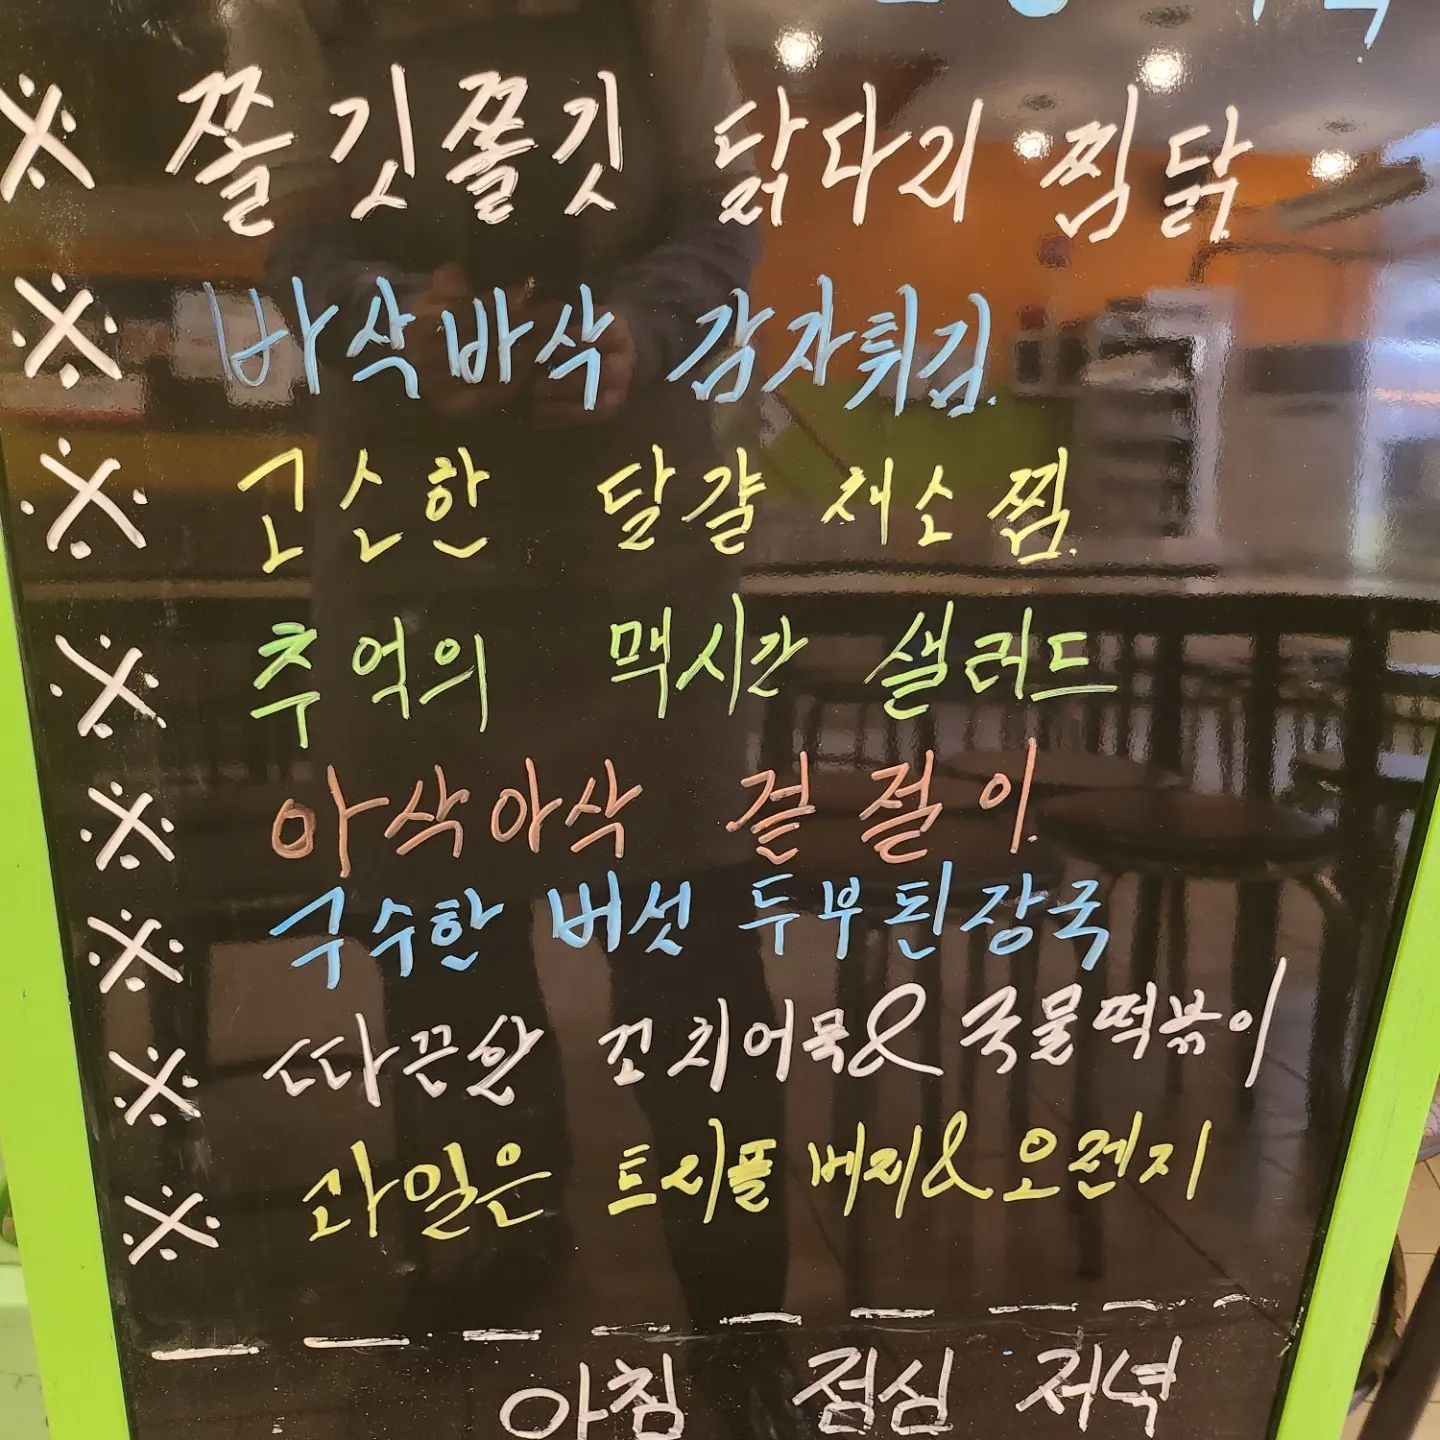 ※ 쫄깃쫄깃 닭다리 찜닭
※ 바삭바삭 감자튀김
※ 고소한 달걀 채소찜
※ 추억의 맥시간 샐러드
※ 아삭아삭 겉절이
※ 구수한 버섯 두부된장국
※ 따끈한 꼬치어묵&국물떡볶이
※ 과일은 트리플베리&오렌지
아침 점심 저녁